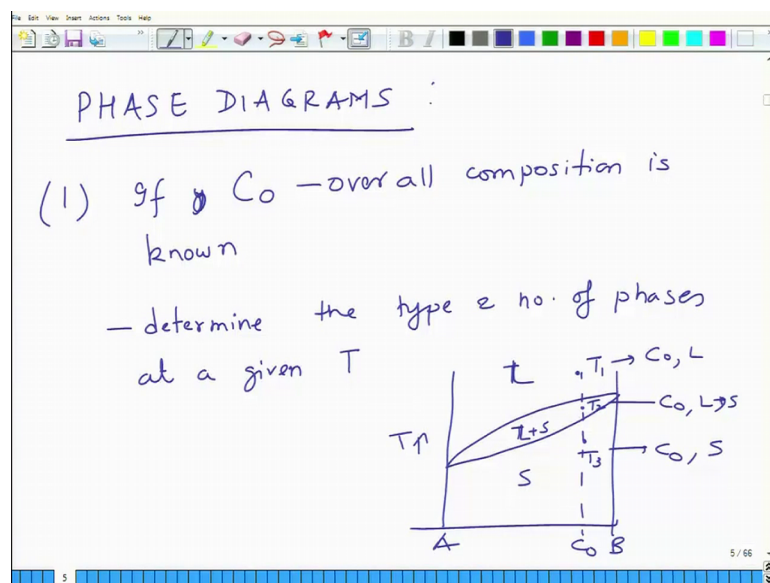 File Edit View Insert Actions Tools Help
PHASE DIAGRAMS :
(1) If C0 – overall composition is
known
– determine the type & no. of phases
at a given T
L
T1 → C0, L
T2 — C0, L+S
L+S
T↑
T3 → C0, S
S
A C0 B
5/66
5